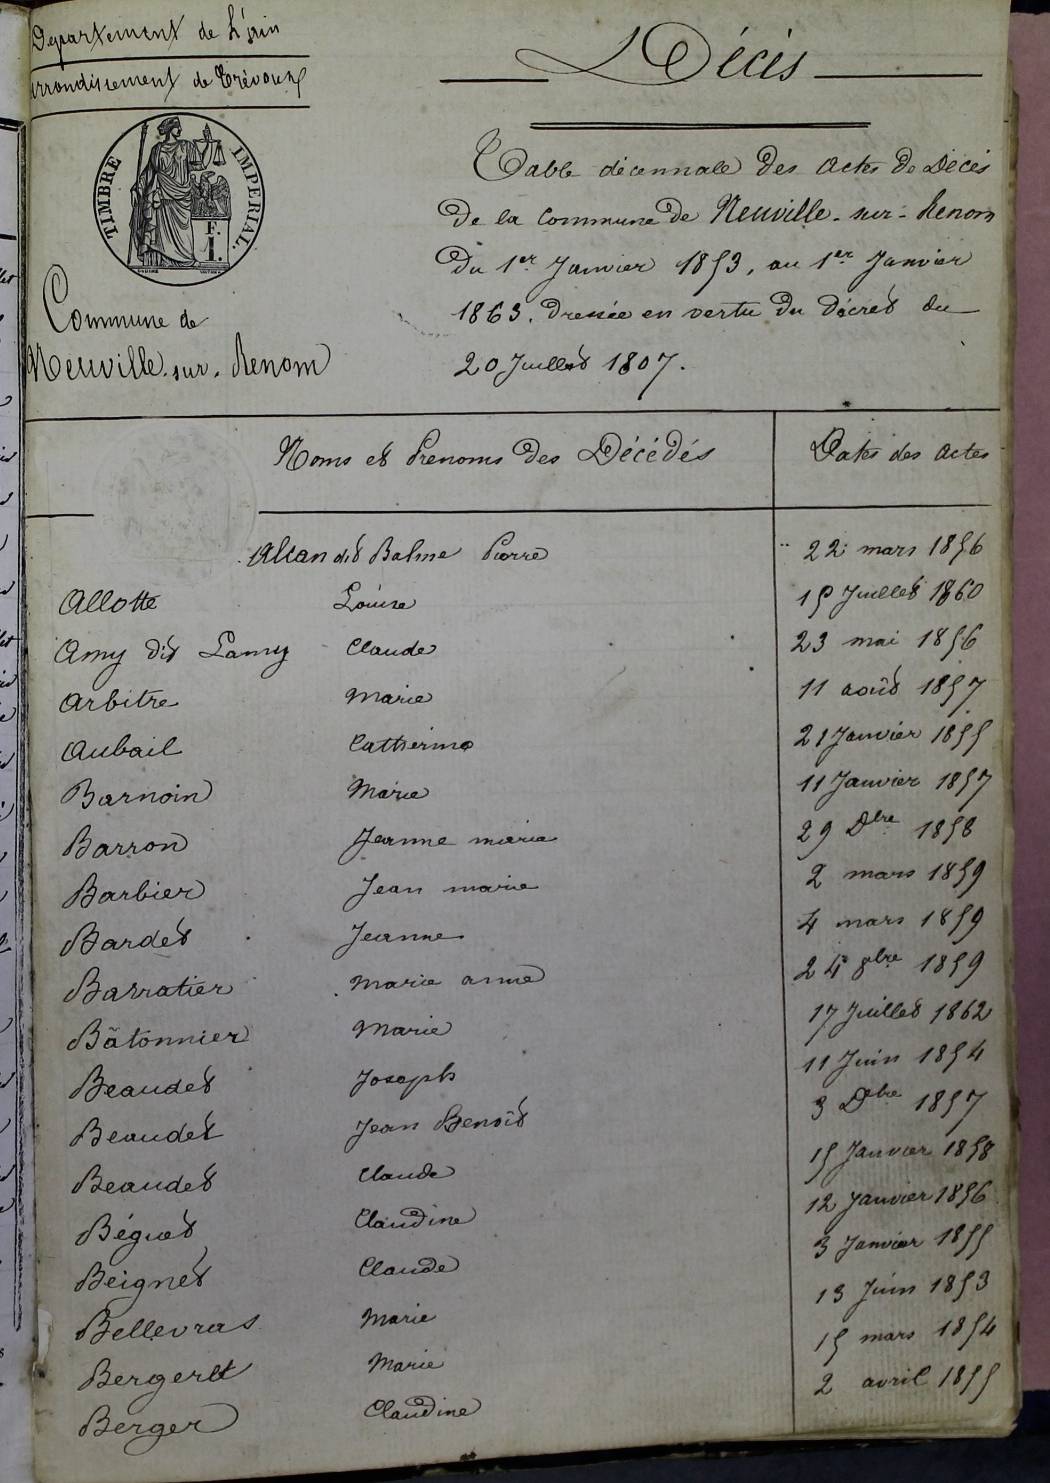 Departement de l'ain
arrondissement de Trévoux
TIMBRE IMPERIAL.
F.
1.
Commune de
Neuville-sur-Renom
Décès
Table décennale des actes de Décès
de la Commune de Neuville-sur-Renom
du 1er Janvier 1853, au 1er Janvier
1863. Dressée en vertu du décret du
20 Juillet 1807.
Noms et Prenoms des Décédés Dates des actes
Allan dit Balme Pierre 22 mars 1856
Allotte Louise 15 Juillet 1860
Amy dit Lamy Claude 23 mai 1856
Arbitre Marie 11 août 1857
Aubail Catherine 21 Janvier 1855
Barnoin Marie 11 Janvier 1857
Barron Jeanne marie 29 Dbre 1858
Barbier Jean marie 2 mars 1859
Bardet Jeanne 4 mars 1859
Barratier Marie anne 24 8bre 1859
Bâtonnier Marie 17 Juillet 1862
Beaudet Joseph 11 Juin 1854
Beaudet Jean Benoît 3 Dbre 1857
Beaudet Claude 15 Janvier 1858
Béguet Claudine 12 Janvier 1856
Beignet Claude 3 Janvier 1855
Bellevras Marie 13 Juin 1853
Bergeret Marie 15 mars 1854
Berger Claudine 2 avril 1855